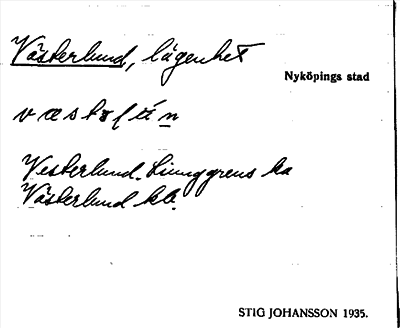 Västerlund, lägenhet
Nyköpings stad
Vesterlund. Ljunggrens ka
Västerlund kb.
STIG JOHANSSON 1935.